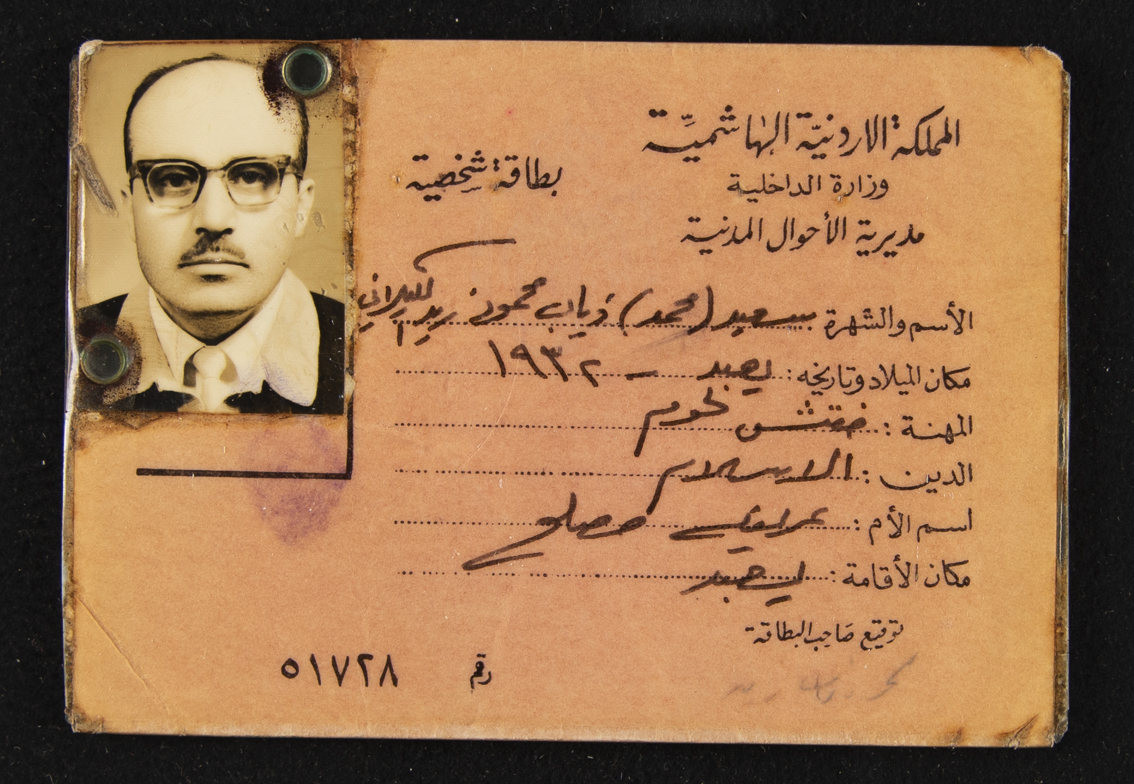 المملكة الاردنيّة الهاشميّة
وزارة الداخلية
بطاقة شخصية
مديرية الأحوال المدنية
الأسم والشهرة سعيد (محمد) ذياب محمود زيد الكيلاني
مكان الميلاد وتاريخه: يعبد - ١٩٣٢
المهنة: مفتش لحوم
الدين: الاسلام
اسم الأم: مصلح
مكان الأقامة: يعبد
توقيع صاحب البطاقة
رقم ٥١٧٢٨